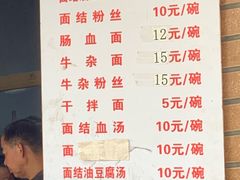 面结粉丝 10元/碗
肠血面 12元/碗
牛杂面 15元/碗
牛杂粉丝 15元/碗
干拌面 5元/碗
面结血汤 10元/碗
面 10元/碗
面结油豆腐汤 10元/碗